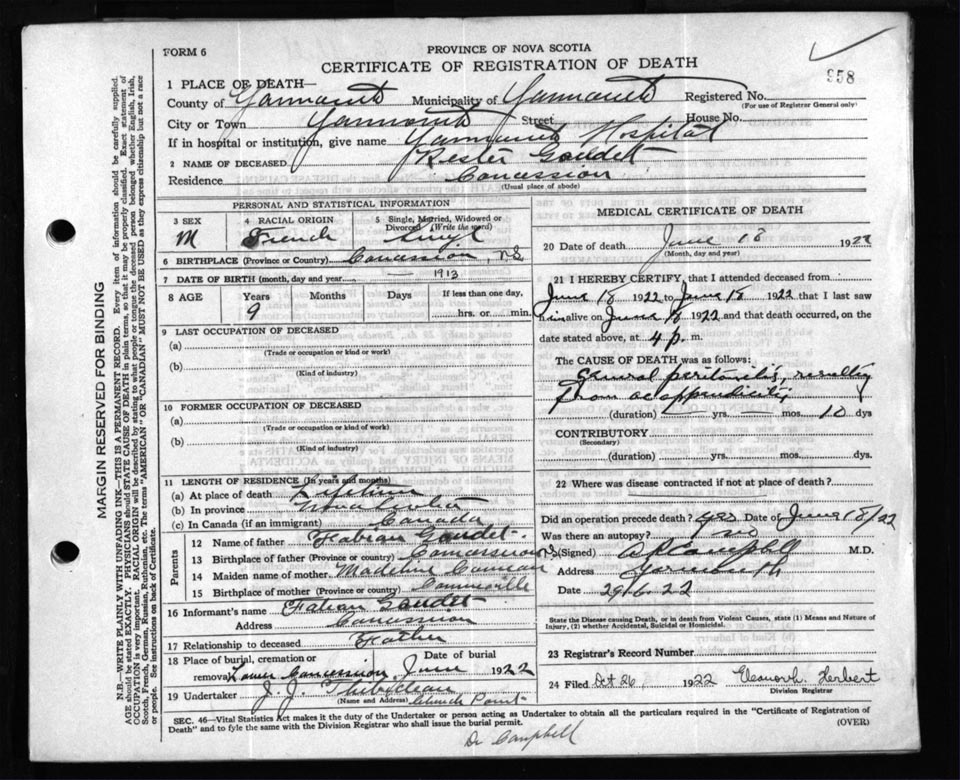 FORM 6
PROVINCE OF NOVA SCOTIA
CERTIFICATE OF REGISTRATION OF DEATH
958
1 PLACE OF DEATH—
County of Yarmouth Municipality of Yarmouth Registered No.
(For use of Registrar General only)
City or Town Yarmouth Street House No.
If in hospital or institution, give name Yarmouth Hospital
2 NAME OF DECEASED Gaudet
Residence Concession
(Usual place of abode)
PERSONAL AND STATISTICAL INFORMATION
3 SEX M
4 RACIAL ORIGIN French
5 Single, Married, Widowed or Divorced (Write the word)
6 BIRTHPLACE (Province or Country) Concession, N.S.
7 DATE OF BIRTH (month, day and year) — 1913
8 AGE Years Months Days If less than one day,
9 hrs. or min.
9 LAST OCCUPATION OF DECEASED
(a)
(Trade or occupation or kind or work)
(b)
(Kind of industry)
10 FORMER OCCUPATION OF DECEASED
(a)
(Trade or occupation or kind or work)
(b)
(Kind of industry)
11 LENGTH OF RESIDENCE (In years and months)
(a) At place of death Lifetime
(b) In province Nova Scotia
(c) In Canada (if an immigrant) Canada
Parents
12 Name of father Fabian Gaudet
13 Birthplace of father (Province or country) Concession N.S.
14 Maiden name of mother Madeline Comeau
15 Birthplace of mother (Province or country) Comeauville
16 Informant's name Fabian Gaudet
Address Concession
17 Relationship to deceased Father
18 Place of burial, cremation or removal Lower Concession Date of burial June 1922
19 Undertaker J. J. Thibodeau
(Name and Address) Point
MEDICAL CERTIFICATE OF DEATH
20 Date of death June 18 1922
(Month, day and year)
21 I HEREBY CERTIFY, that I attended deceased from
June 18 1922 to June 18 1922 that I last saw
him alive on June 18 1922 and that death occurred, on the
date stated above, at 4 p. m.
The CAUSE OF DEATH was as follows:
General peritonitis, resulting
from ac appendicitis
(duration) yrs. mos. 10 dys
CONTRIBUTORY
(Secondary)
(duration) yrs. mos. dys.
22 Where was disease contracted if not at place of death?
Did an operation precede death? yes Date of June 18/22
Was there an autopsy? no
(Signed) Campbell M.D.
Address Yarmouth
Date 29.6.22
State the Disease causing Death, or in death from Violent Causes, state (1) Means and Nature of
Injury, (2) whether Accidental, Suicidal or Homicidal.
23 Registrar's Record Number
24 Filed Oct 26 1922 Herbert
Division Registrar
SEC. 46—Vital Statistics Act makes it the duty of the Undertaker or person acting as Undertaker to obtain all the particulars required in the "Certificate of Registration of
Death" and to fyle the same with the Division Registrar who shall issue the burial permit.
(OVER)
Dr Campbell
MARGIN RESERVED FOR BINDING
N.B.—WRITE PLAINLY WITH UNFADING INK—THIS IS A PERMANENT RECORD. Every item of information should be carefully supplied.
AGE should be stated EXACTLY. PHYSICIANS should STATE CAUSE OF DEATH in plain terms, so that it may be properly classified. Exact statement of
OCCUPATION is very important. RACIAL ORIGIN will be described by stating to what people or tongue the deceased person belonged whether English, Irish,
Scotch, French, German, Russian, Ruthenian, etc. The terms "AMERICAN" or "CANADIAN" MUST NOT BE USED as they express citizenship but not a race
or people. See instructions on back of Certificate.